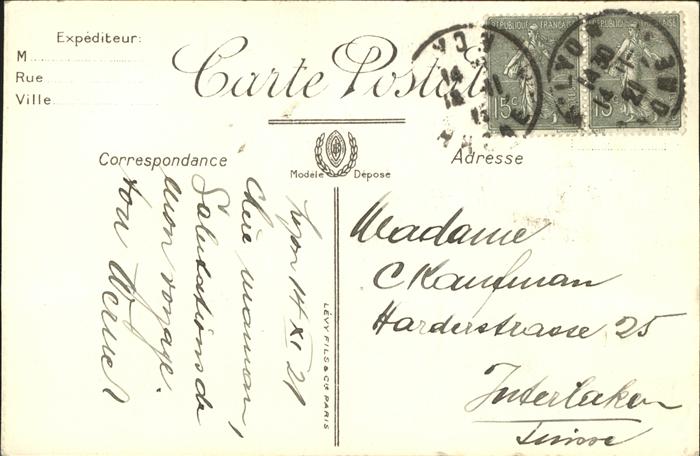 Expéditeur:
M
Rue
Ville
Carte Postale
RÉPUBLIQUE FRANÇAISE
15c
RÉPUBLIQUE FRANÇAISE
15c
LYON
RHONE
LYON
14 30
14 - 11
21
RHONE
Correspondance
Modèle Déposé
Adresse
Lyon 14 XI 21
Chère maman,
Salutations de
mon voyage.
ton Werner
LÉVY FILS & Cie PARIS
Madame
C Kaufman
Harderstrasse 25
Interlaken
Suisse